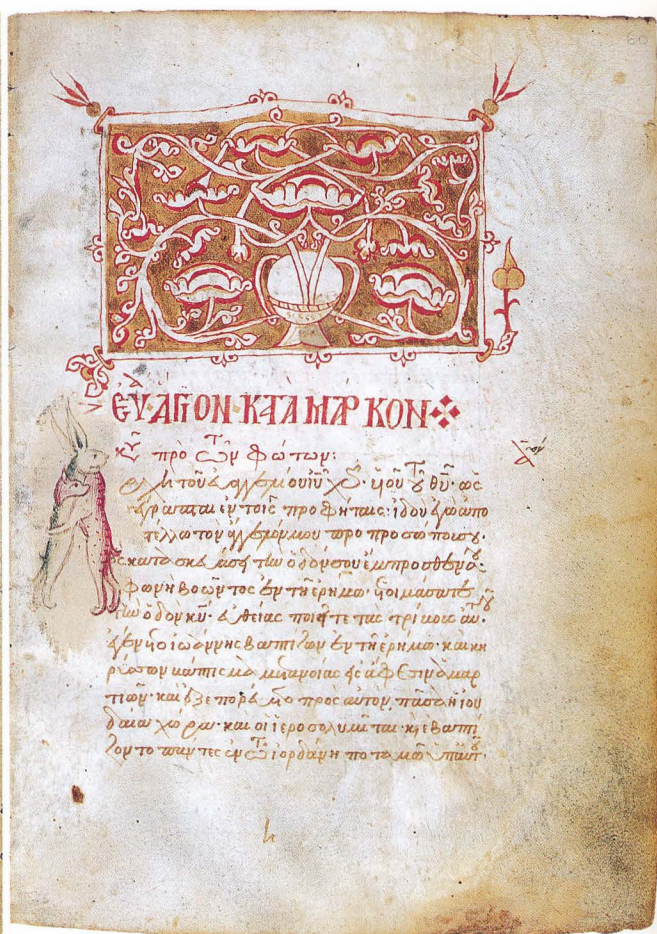 ΕΥΑΓΓΙΟΝ ΚΑΤΑ ΜΑΡΚΟΝ
κυ προ των φώτων:
Αρχὴ τοῦ ευαγγελίου ιυ χυ υιοῦ του θυ· ως
γέγραπται εν τοῖς προφήταις· ιδου εγὼ απο
στέλλω τον αγγελόν μου προ προσώπου σου·
ος κατασκευάσει την οδόν σου έμπροσθέν σου·
φωνὴ βοῶντος εν τῆ ερήμω· ετοιμάσατε
την οδὸν κυ· ευθείας ποιεῖτε τας τρίβους αυτου·
εγένετο ιωάννης βαπτίζων εν τῆ ερήμω· και κη
ρύσσων βάπτισμα μετανοίας εις άφεσιν αμαρ
τιῶν· και εξεπορεύετο προς αυτον πᾶσα η ιου
δαία χώρα· και οι ιεροσολυμίται· και εβαπτί
ζοντο πάντες εν τω ιορδάνη ποταμῶ υπ αυτου·